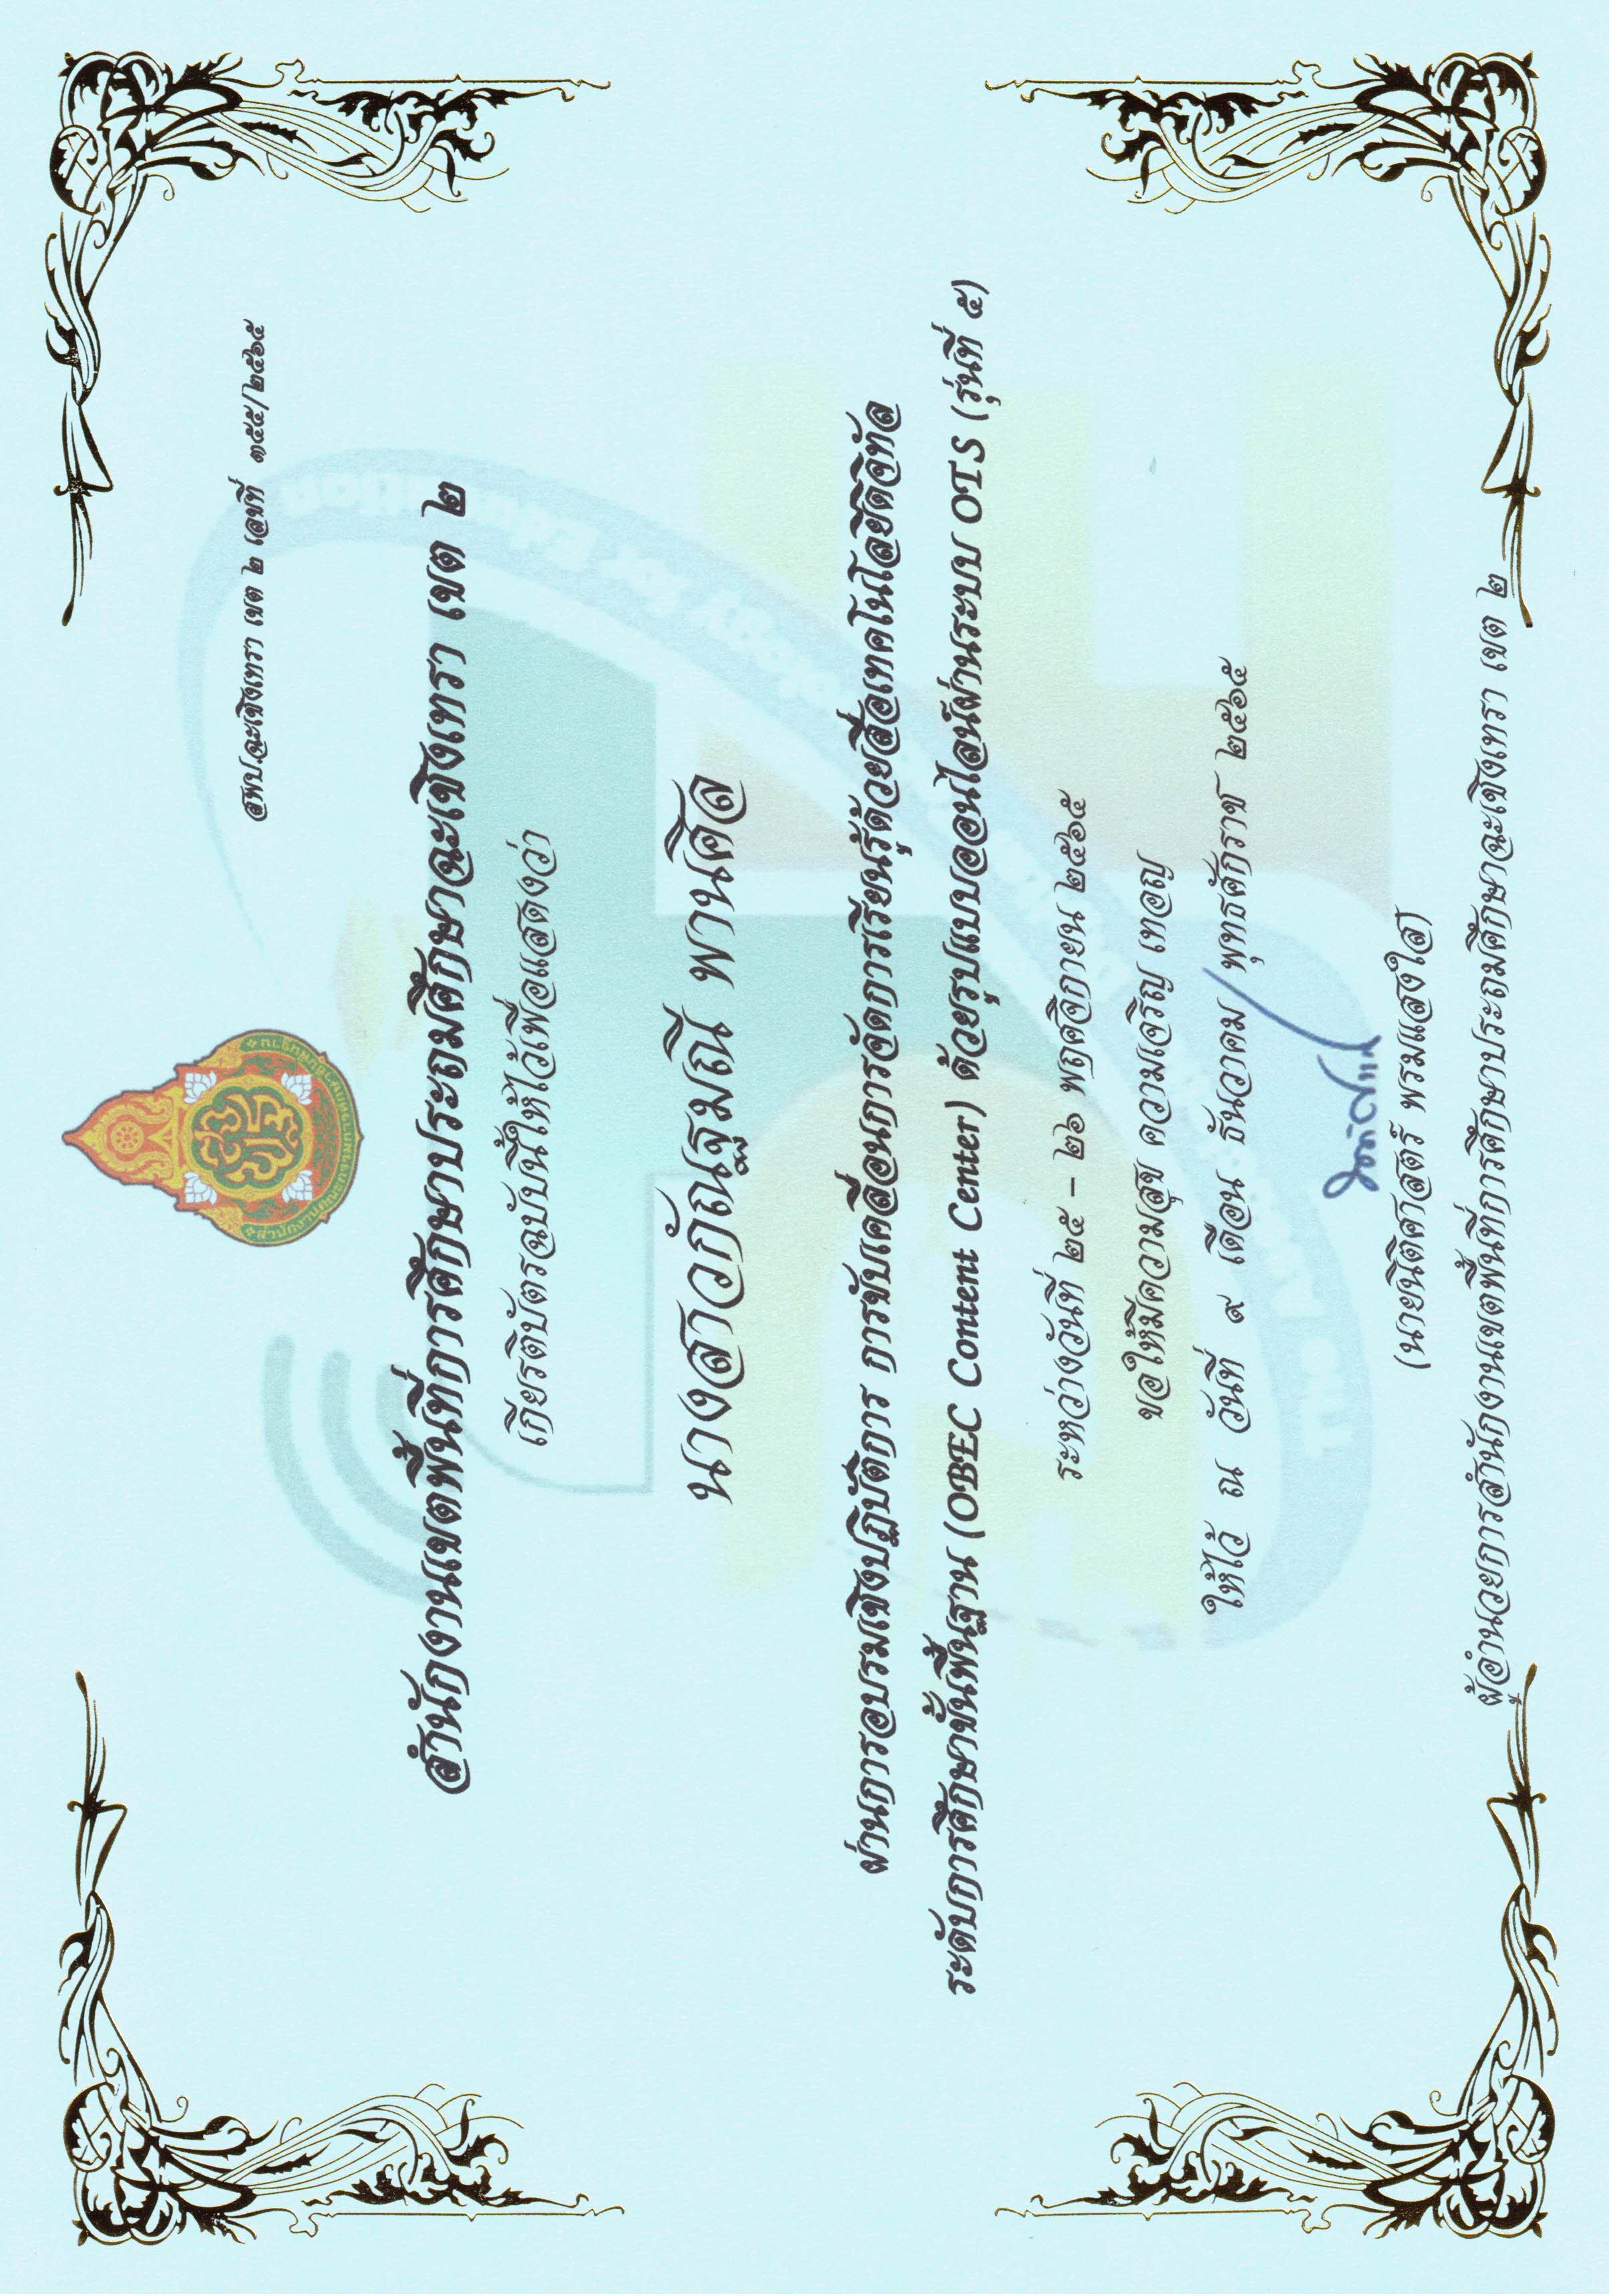 สพป.ฉะเชิงเทรา เขต ๒ เลขที่ ๓๕๕/๒๕๖๕
สำนักงานเขตพื้นที่การศึกษาประถมศึกษาฉะเชิงเทรา เขต ๒
เกียรติบัตรฉบับนี้ให้ไว้เพื่อแสดงว่า
นางสาวกัณฐมณี พานศิล
ผ่านการอบรมเชิงปฏิบัติการ การขับเคลื่อนการจัดการเรียนรู้ด้วยสื่อเทคโนโลยีดิจิทัล
ระดับการศึกษาขั้นพื้นฐาน (OBEC Content Center) ด้วยรูปแบบออนไลน์ผ่านระบบ OTS (รุ่นที่ ๕)
ระหว่างวันที่ ๒๕ – ๒๖ พฤศจิกายน ๒๕๖๕
ขอให้มีความสุข ความเจริญ เทอญ
ให้ไว้ ณ วันที่ ๙ เดือน ธันวาคม พุทธศักราช ๒๕๖๕
(นายนิติศาสตร์ พรมแสงใส)
ผู้อำนวยการสำนักงานเขตพื้นที่การศึกษาประถมศึกษาฉะเชิงเทรา เขต ๒